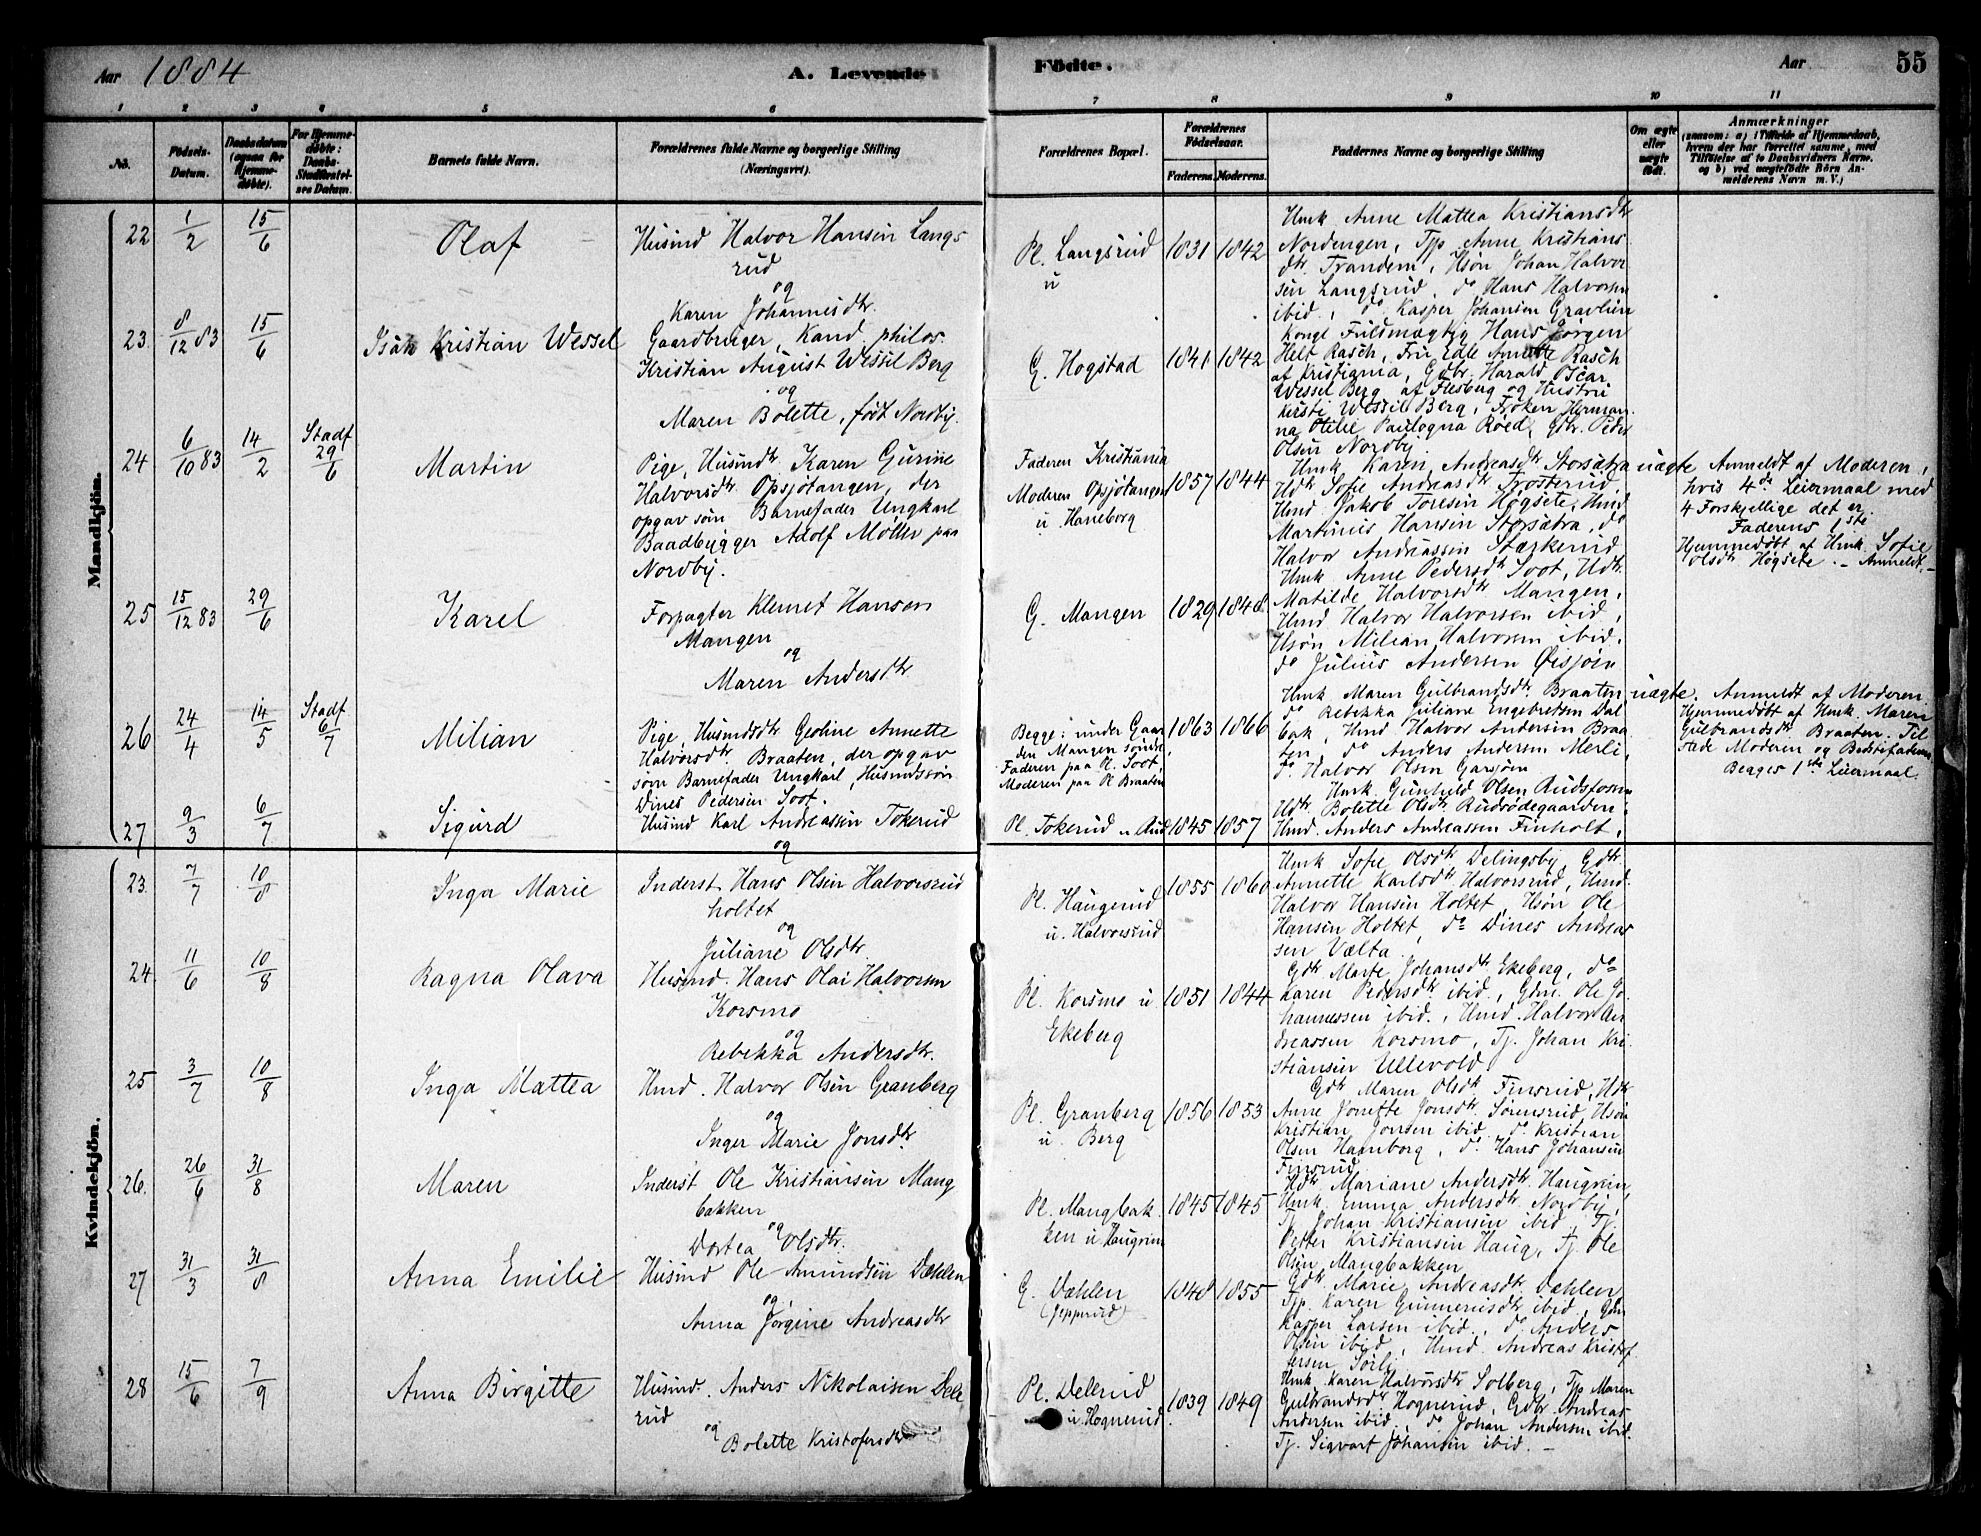 Aar 1884
A. Levende
Födte.
Aar
55
1 2 3 4 5 6 7 8 9 10 11
No.
Födsels-
Datum.
Daabsdatum
(ogsaa for
Hjemme-
döbte).
For Hjemme-
döbte:
Daabs-
Stadfæstel-
ses Datum.
Barnets fulde Navn.
Forældrenes fulde Navne og borgerlige Stilling
(Næringsvei).
Forældrenes Bopæl.
Forældrenes
Födselsaar.
Faderens. Moderens.
Faddernes Navne og borgerlige Stilling
Om ægte
eller
uægte
født.
Anmærkninger
(saasom: a) i Tilfælde af Hjemmedaab,
hvem der har forrettet samme, med
Tilföielse af to Daabsvidners Navne.
og b) ved uægtefödte Börn An-
melderens Navn m. V.)
Mandkjön.
22 1/2 15/6 Olaf
Husmd Halvor Hansen Langs
rud
og
Karen Johannesdtr.
Pl. Langsrud
u
1831 1842
Hmk Anne Mattea Kristiansdtr
Nordengen, Tjp. Anne Kristians
dtr. Frandem, Hsøn Johan Halvor
sen Langsrud, do Hans Halvorsen
ibid., do Kasper Johansen Gravlien
23. 8/12 83 15/6 Isak Kristian Wessel
Gaardbruger, Kand. philos.
Kristian August Wessel Berg
og
Maren Bolette, født Nordby.
G. Hogstad
1841 1842
Kongl Fuldmægtig Hans Jørgen
Helt Rasch, Fru Edle Annette Rasch
af Kristiania, Gdbr. Harald Oscar
Wessel Berg af Flesberg og Hustru
Kirsti Wessel Berg, Frøken Herman
na Otilie Paulogna Røed, Gdbr. Peder
Olsen Nordby
24 6/10 83 14/2 Stadf 29/6 Martin
Pige, Husmdtr. Karen Gurine
Halvorsdtr. Opsjøtangen, der
opgav som Barnefader Ungkarl
Baadbygger Adolf Møller paa
Nordby.
Faderen Kristiania
Moderen Opsjøtangen
u. Haneborg
1857 1844
Hmk Karen Andreasdtr Storsætra
Hdtr Sofie Andreasdtr Trosterud
Hmd Jakob Toresen Høgsete, Hmd
Martinus Hansen Storsætra, do
Halvor Andreassen Stærkerud
uægte
Anmeldt af Moderen,
hvis 4de Leiermaal med
4 Forskjellige det er.
Faderens 1ste
Hjemmedøbt af Hmk. Sofie
Olsdtr Høgsete. – Anmeldt. –
25 15/12 83 29/6 Karel
Forpagter Klemet Hansen
Mangen
og
Maren Andersdtr
G. Mangen
1829 1848.
Hmk. Anne Pedersdtr Soot, Hdtr.
Matilde Halvorsdtr Mangen,
Hmd Halvor Halvorsen ibid,
Hsøn Milian Halvorsen ibid.
do Julius Andersen Øisjøen
26 24/4 14/5 Stadf 6/7 Milian
Pige, Husmdsdtr Geoline Annette
Halvorsdtr. Braaten, der opgav
som Barnefader Ungkarl, Husmdssøn
Dines Pedersen Soot.
Begge: under Gaar
den Mangen søndre
Faderen paa Pl. Soot,
Moderen paa Pl Braaten
1863 1866
Hmk Maren Gulbrandsdtr. Braaten
do Rebekka Juliane Engebretsen Dal
bak, Hmd Halvor Andersen Braa
ten, do Anders Andersen Merli,
do Halvor Olsen Garsjøen
uægte.
Anmeldt af Moderen.
Hjemmedøbt af Hmk. Maren
Gulbrandsdtr. Braaten. Til
stede Moderen og Bedstefaderen
Begges 1ste Leiermaal.
27 9/3 6/7 Sigurd
Husmd Karl Andreassen Tokerud
og
Pl. Tokerud u Rud
1845 1857
Hmk. Gunhild Olsen Rudsfossen
Hdtr. Bolette Olsdtr. Rudsødegaarden.
Hmd. Anders Andreassen Finholt,
Kvindekjön.
23. 7/7 10/8 Inga Marie
Inderst Hans Olsen Halvorsrud
holtet
og
Juliane Olsdtr.
Pl. Haugerud
u. Halvorsrud
1855 1860
Hmk Sofie Olsdtr Delingsby, Gdtr.
Annette Karlsdtr Halvorsrud, Hmd.
Halvor Hansen Holtet, Hsøn Ole
Hansen Holtet, do Dines Andreas
sen Vælta.
24. 11/6 10/8 Ragna Olava
Husmd. Hans Olai Halvorsen
Korsmo
og
Rebekka Andersdtr.
Pl. Korsmo u
Ekeberg
1851 1844
Gdtr Marte Johansdtr Ekeberg, do
Karen Pedersdtr. ibid., Gdm. Ole Jo
hannessen ibid., Hmd. Halvor An
dreassen Korsmo, Tj. Johan Kri
stiansen Ullevold
25 3/7 10/8 Inga Mattea
Hmd. Halvor Olsen Granberg
og
Inger Marie Jonsdtr
Pl. Granberg
u. Berg
1856 1853
Gdtr Maren Olsdtr Finsrud, Hdtr
Anne Jonette Jonsdtr. Sørensrud, Hsøn
Kristian Jonsen ibid. do Kristian
Olsen Haneborg, do. Hans Johansen
Finsrud
26. 26/6 31/8 Maren
Inderst Ole Kristiansen Mang
bakken
og
Dortea Olsdtr.
Pl. Mangbak
ken u Haugrim
1845 1845
Hdtr Mariane Andersdtr. Haugrim,
Hmk Emma Andersdtr. Nordby,
Tj. Johan Kristiansen ibid. Tj.
Petter Kristiansen Haug, Tj. Ole
Olsen Mangbakken
27 31/3 31/8 Anna Emilie
Husmd Ole Amundsen Dæhlen
og
Anna Jørgine Andreasdtr
G. Dæhlen
(Jepperud)
1848 1855
Gdtr. Marie Andreasdtr Dæhlen
Tjp. Karen Gunneriusdtr ibid, Gdm
Kasper Larsen ibid, do Anders
Olsen ibid, Hmd. Andreas Kristof
fersen Sørli
28 15/6 7/9 Anna Birgitte
Husmd. Anders Nikolaisen Dele
rud
og
Bolette Kristofersdtr
Pl. Delerud
u. Hognerud
1839 1849
Hmk. Karen Halvorsdtr Solberg, Tjp Maren
Gulbrandsdtr Hognerud, Gdbr. Andreas
Andersen ibid. do Johan Andersen ibid.
Tj. Sigvart Johansen ibid. –